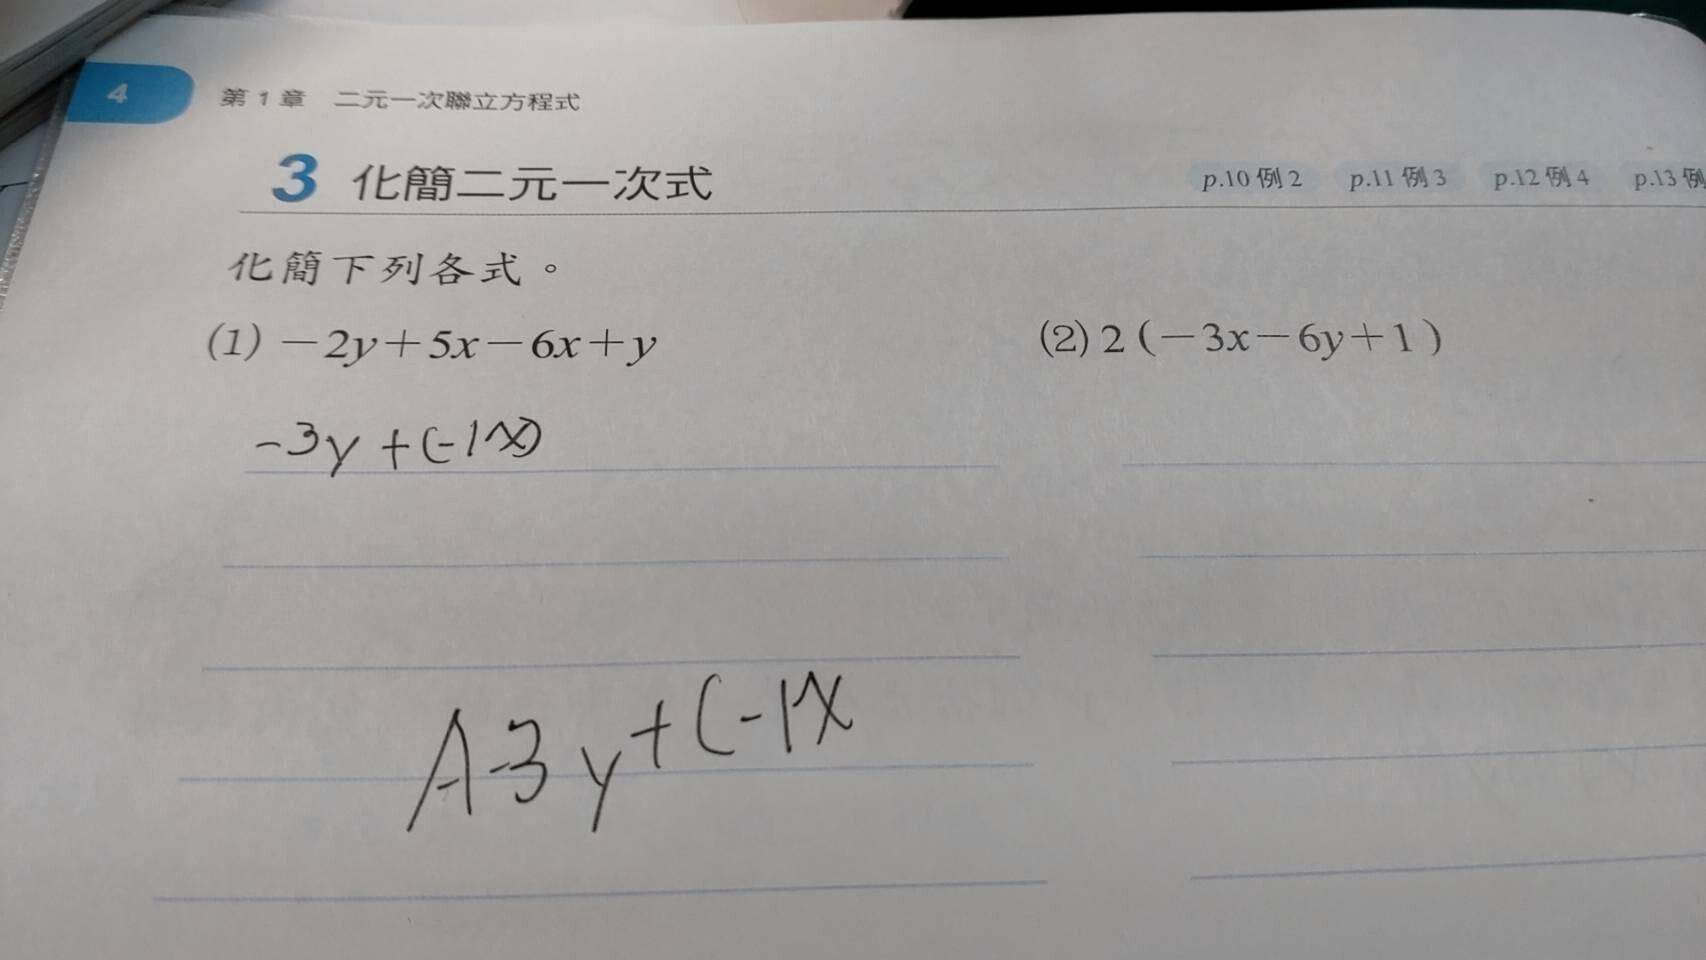 4 第 1 章 二元一次聯立方程式
3 化簡二元一次式 p.10 例 2 p.11 例 3 p.12 例 4 p.13 例
化簡下列各式。
(1) －2y＋5x－6x＋y (2) 2（－3x－6y＋1）
-3y +(-1x)
A-3y+(-1x